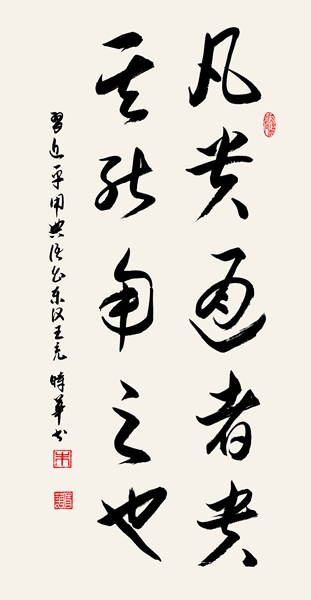 凡贵通者贵
其能用之也
習近平用典语出东汉王充 時華书